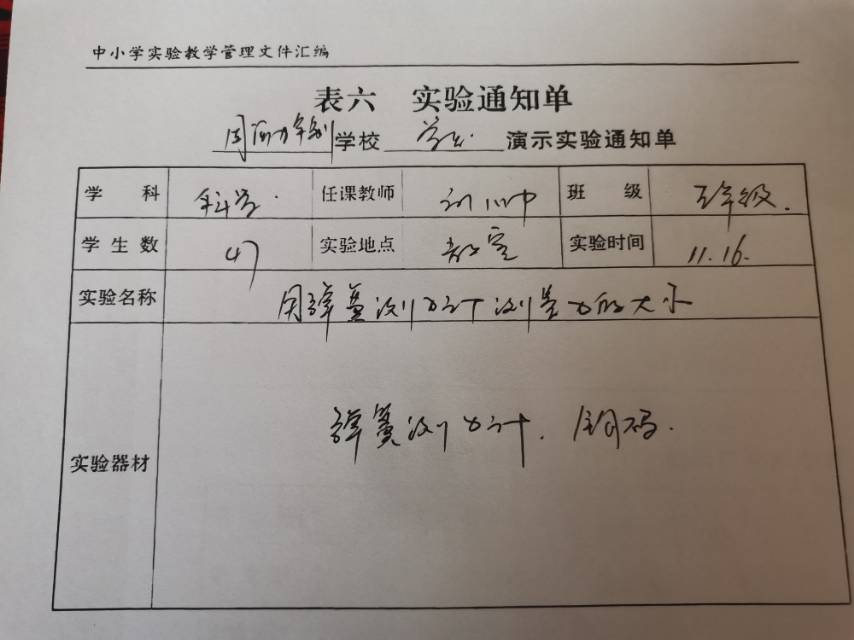 中小学实验教学管理文件汇编
表六 实验通知单
学校 学生 演示实验通知单
学 科 科学. 任课教师 班 级 五年级.
学生数 47 实验地点 教室 实验时间 11.16.
实验名称 用弹簧测力计测量力的大小
实验器材 弹簧测力计. 钩码.